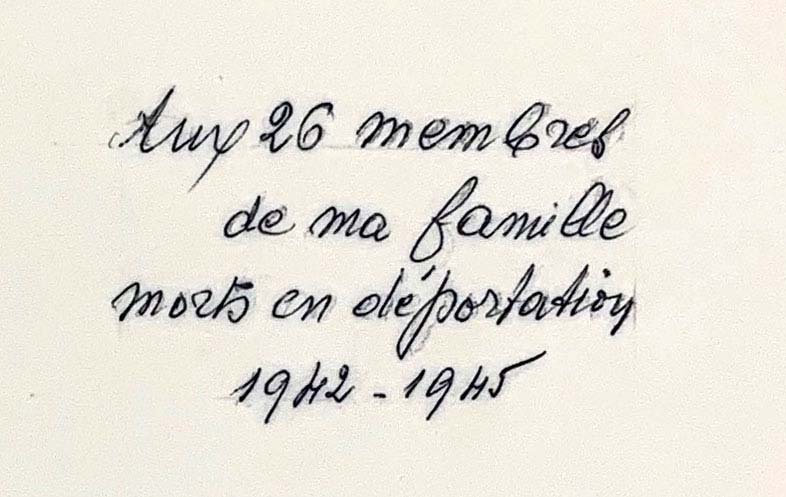 Aux 26 membres
de ma famille
morts en déportation
1942 - 1945